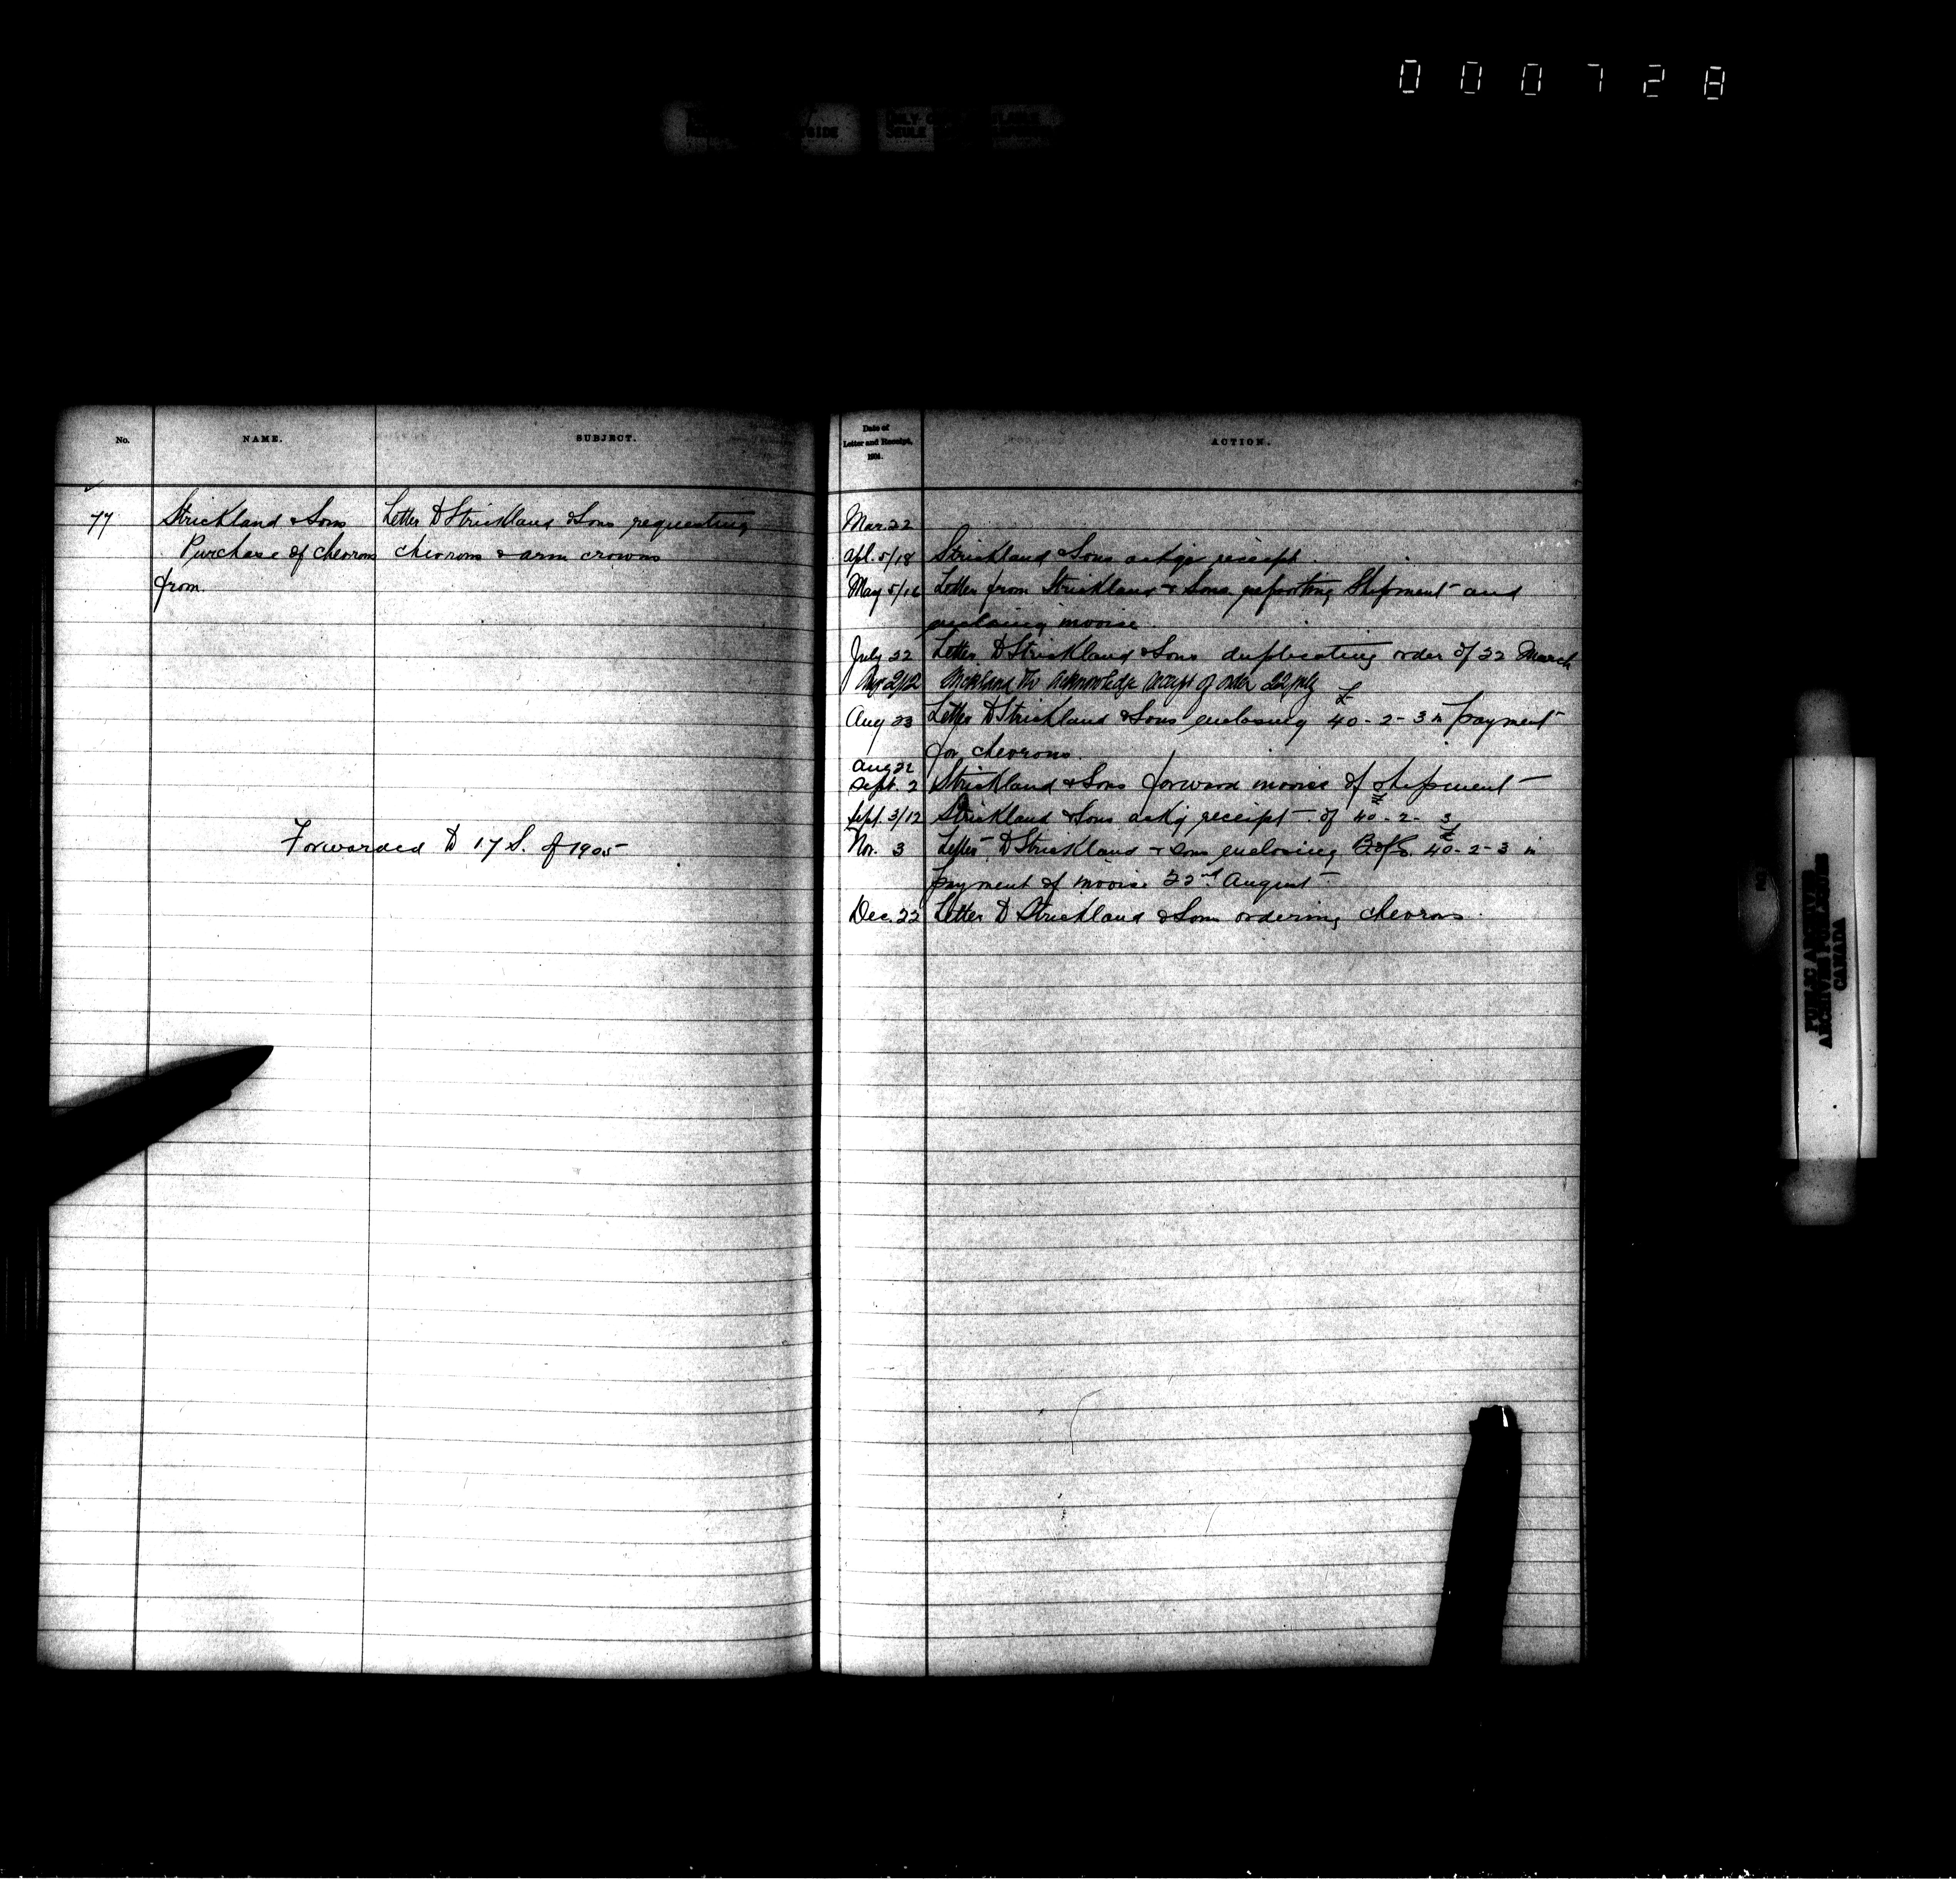 000728
No.
NAME.
SUBJECT.
77
Strickland & Sons
Purchase of chevrons
from
Letter to Strickland & Sons requesting
chevrons & arm crowns
Forwarded to 17 S. of 1905
Date of
Letter and Receipt,
1904.
ACTION.
Mar. 22
Apl. 5/18 Strickland & Sons ackg receipt
May 5/16 Letter from Strickland & Sons reporting Shipment and
enclosing invoice
July 22 Letter to Strickland & Sons duplicating order of 22 March
Aug 2/12 Strickland acknowledge receipt of order 22 July
Aug 23 Letter to Strickland & Sons enclosing £ 40-2-3 in payment
for chevrons
Aug 22
Sept. 2 Strickland & Sons forward invoice of shipment
Sept. 3/12 Strickland & Sons ackg receipt of 40-2-3
Nov. 3 Letter to Strickland & Sons enclosing B of E. £ 40-2-3 in
payment of invoice 22nd August
Dec. 22 Letter to Strickland & Sons ordering chevrons.
PUBLIC ARCHIVES
ARCHIVES PUBLIQUES
CANADA